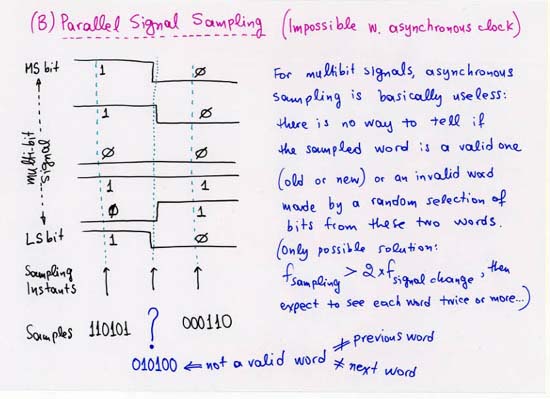 (B) Parallel Signal Sampling (Impossible w. asynchronous clock)
MS bit
1 Ø
1 Ø
Ø Ø
1 1
Ø 1
1 Ø
multi-bit
signal
LS bit
Sampling
Instants
Samples 110101 ? 000110
010100 ⇐ not a valid word ≠ previous word
≠ next word
For multibit signals, asynchronous
sampling is basically useless:
there is no way to tell if
the sampled word is a valid one
(old or new) or an invalid word
made by a random selection of
bits from these two words.
(Only possible solution:
fsampling > 2 × fsignal change, then
expect to see each word twice or more...)